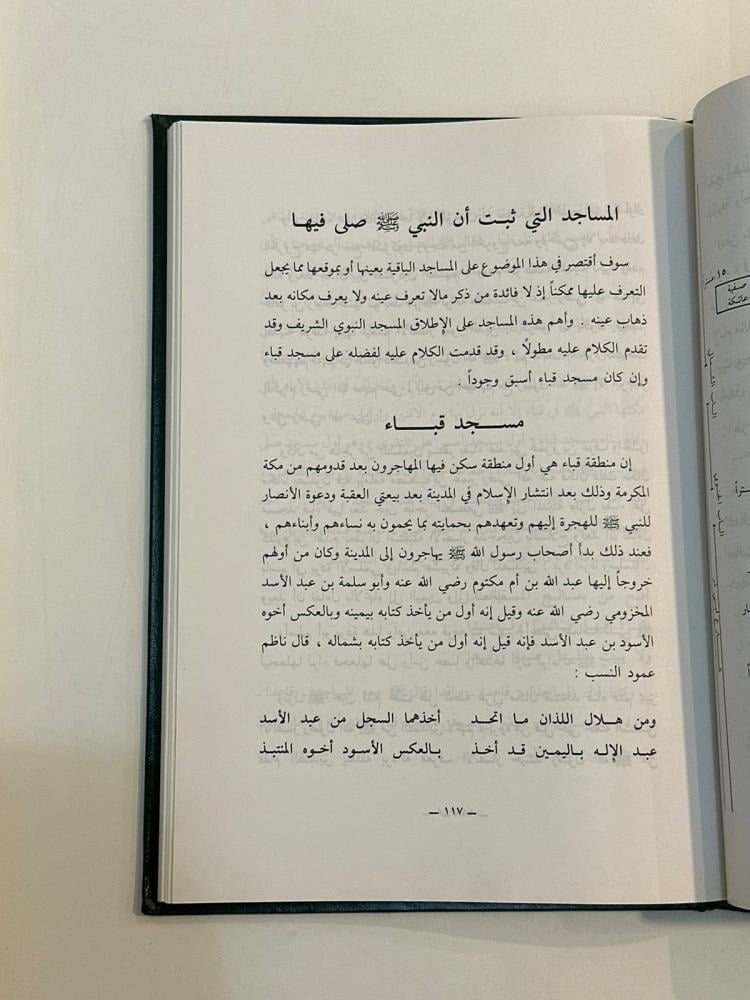 المساجد التي ثبت أن النبي ﷺ صلى فيها
سوف أقتصر في هذا الموضوع على المساجد الباقية بعينها أو بموقعها مما يجعل
التعرف عليها ممكناً إذ لا فائدة من ذكر مالا تعرف عينه ولا يعرف مكانه بعد
ذهاب عينه . وأهم هذه المساجد على الإطلاق المسجد النبوي الشريف وقد
تقدم الكلام عليه مطولاً ، وقد قدمت الكلام عليه لفضله على مسجد قباء
وإن كان مسجد قباء أسبق وجوداً .
مسجد قباء
إن منطقة قباء هي أول منطقة سكن فيها المهاجرون بعد قدومهم من مكة
المكرمة وذلك بعد انتشار الإسلام في المدينة بعد بيعتي العقبة ودعوة الأنصار
للنبي ﷺ للهجرة إليهم وتعهدهم بحمايته بما يحمون به نساءهم وأبناءهم ،
فعند ذلك بدأ أصحاب رسول الله ﷺ يهاجرون إلى المدينة وكان من أولهم
خروجاً إليها عبد الله بن أم مكتوم رضي الله عنه وأبو سلمة بن عبد الأسد
المخزومي رضي الله عنه وقيل إنه أول من يأخذ كتابه بيمينه وبالعكس أخوه
الأسود بن عبد الأسد فإنه قيل إنه أول من يأخذ كتابه بشماله ، قال ناظم
عمود النسب :
ومن هلال اللذان ما اتحد أخذهما السجل من عبد الأسد
عبد الإله باليمين قد أخذ بالعكس الأسود أخوه المنتبذ
— ١١٧ —
١٥
صفية
عاتكة